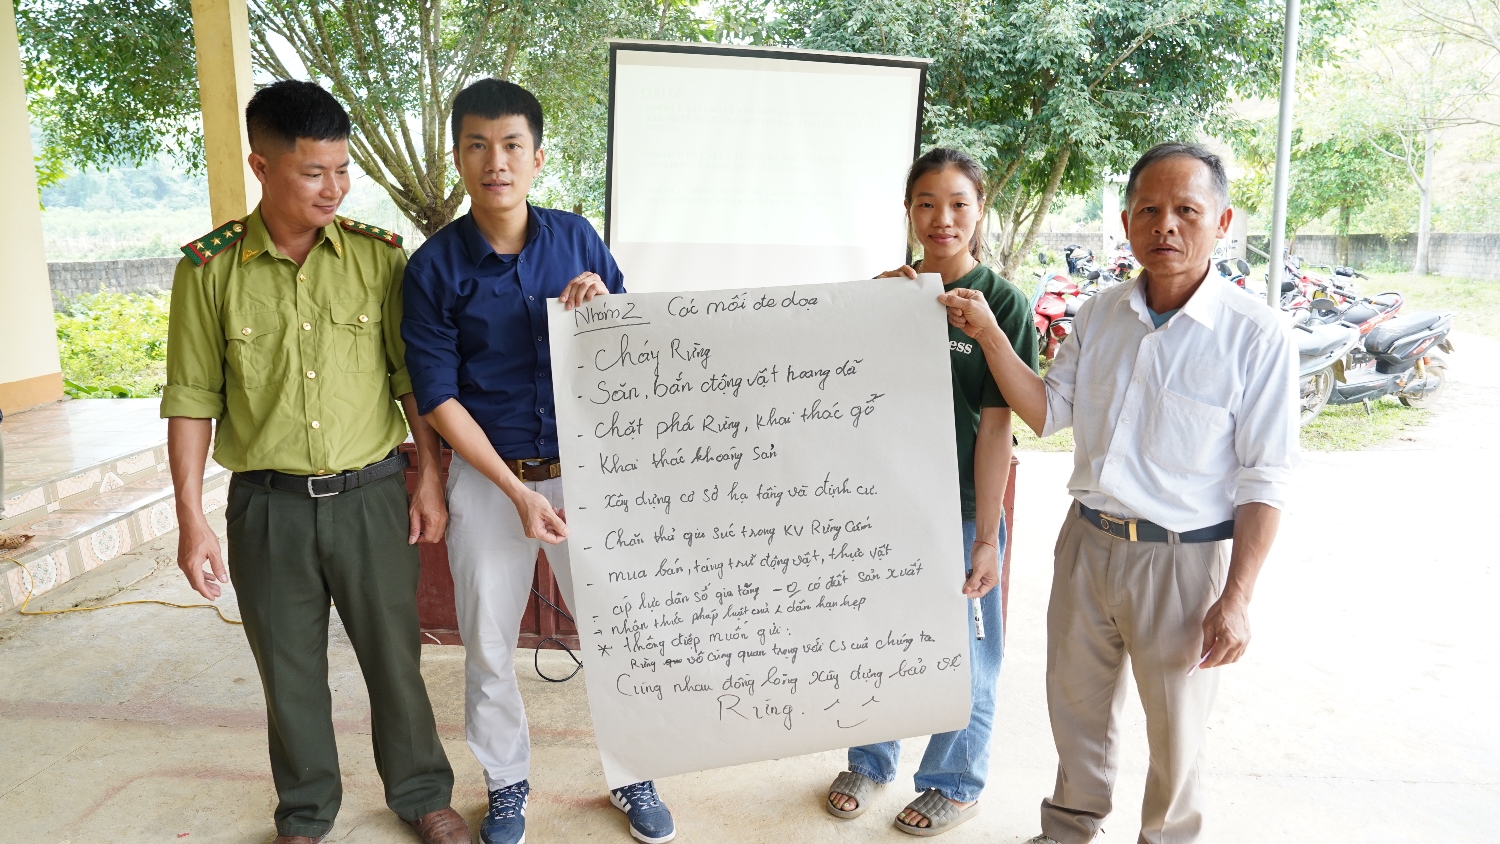 Nhóm 2 Các mối đe dọa
- Cháy Rừng
- Săn, bắn động vật hoang dã
- Chặt phá Rừng, Khai thác gỗ
- Khai thác khoáng sản
- Xây dựng cơ sở hạ tầng và định cư.
- Chăn thả gia súc trong KV Rừng Cấm
- mua bán, tàng trữ động vật, thực vật
- áp lực dân số gia tăng - có đất sản xuất
→ nhận thức pháp luật của dân hạn hẹp
* thông điệp muốn gửi:
Rừng vô cùng quan trọng với CS của chúng ta.
Cùng nhau đồng lòng xây dựng bảo vệ
Rừng.
ess